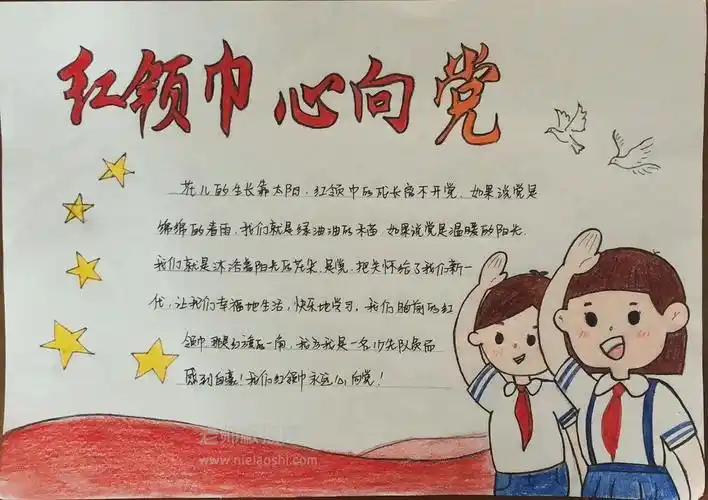 红领巾 心向党
花儿的生长靠太阳，红领巾的成长离不开党，如果说党是
绵绵的春雨，我们就是绿油油的禾苗，如果说党是温暖的阳光，
我们就是沐浴着阳光的花朵。是党，把关怀给了我们新一
代，让我们幸福地生活，快乐地学习，我们胸前的红
领巾，那是红旗的一角，我为我是一名少先队员而
感到自豪！我们红领巾永远心向党！
www.nielaoshi.com